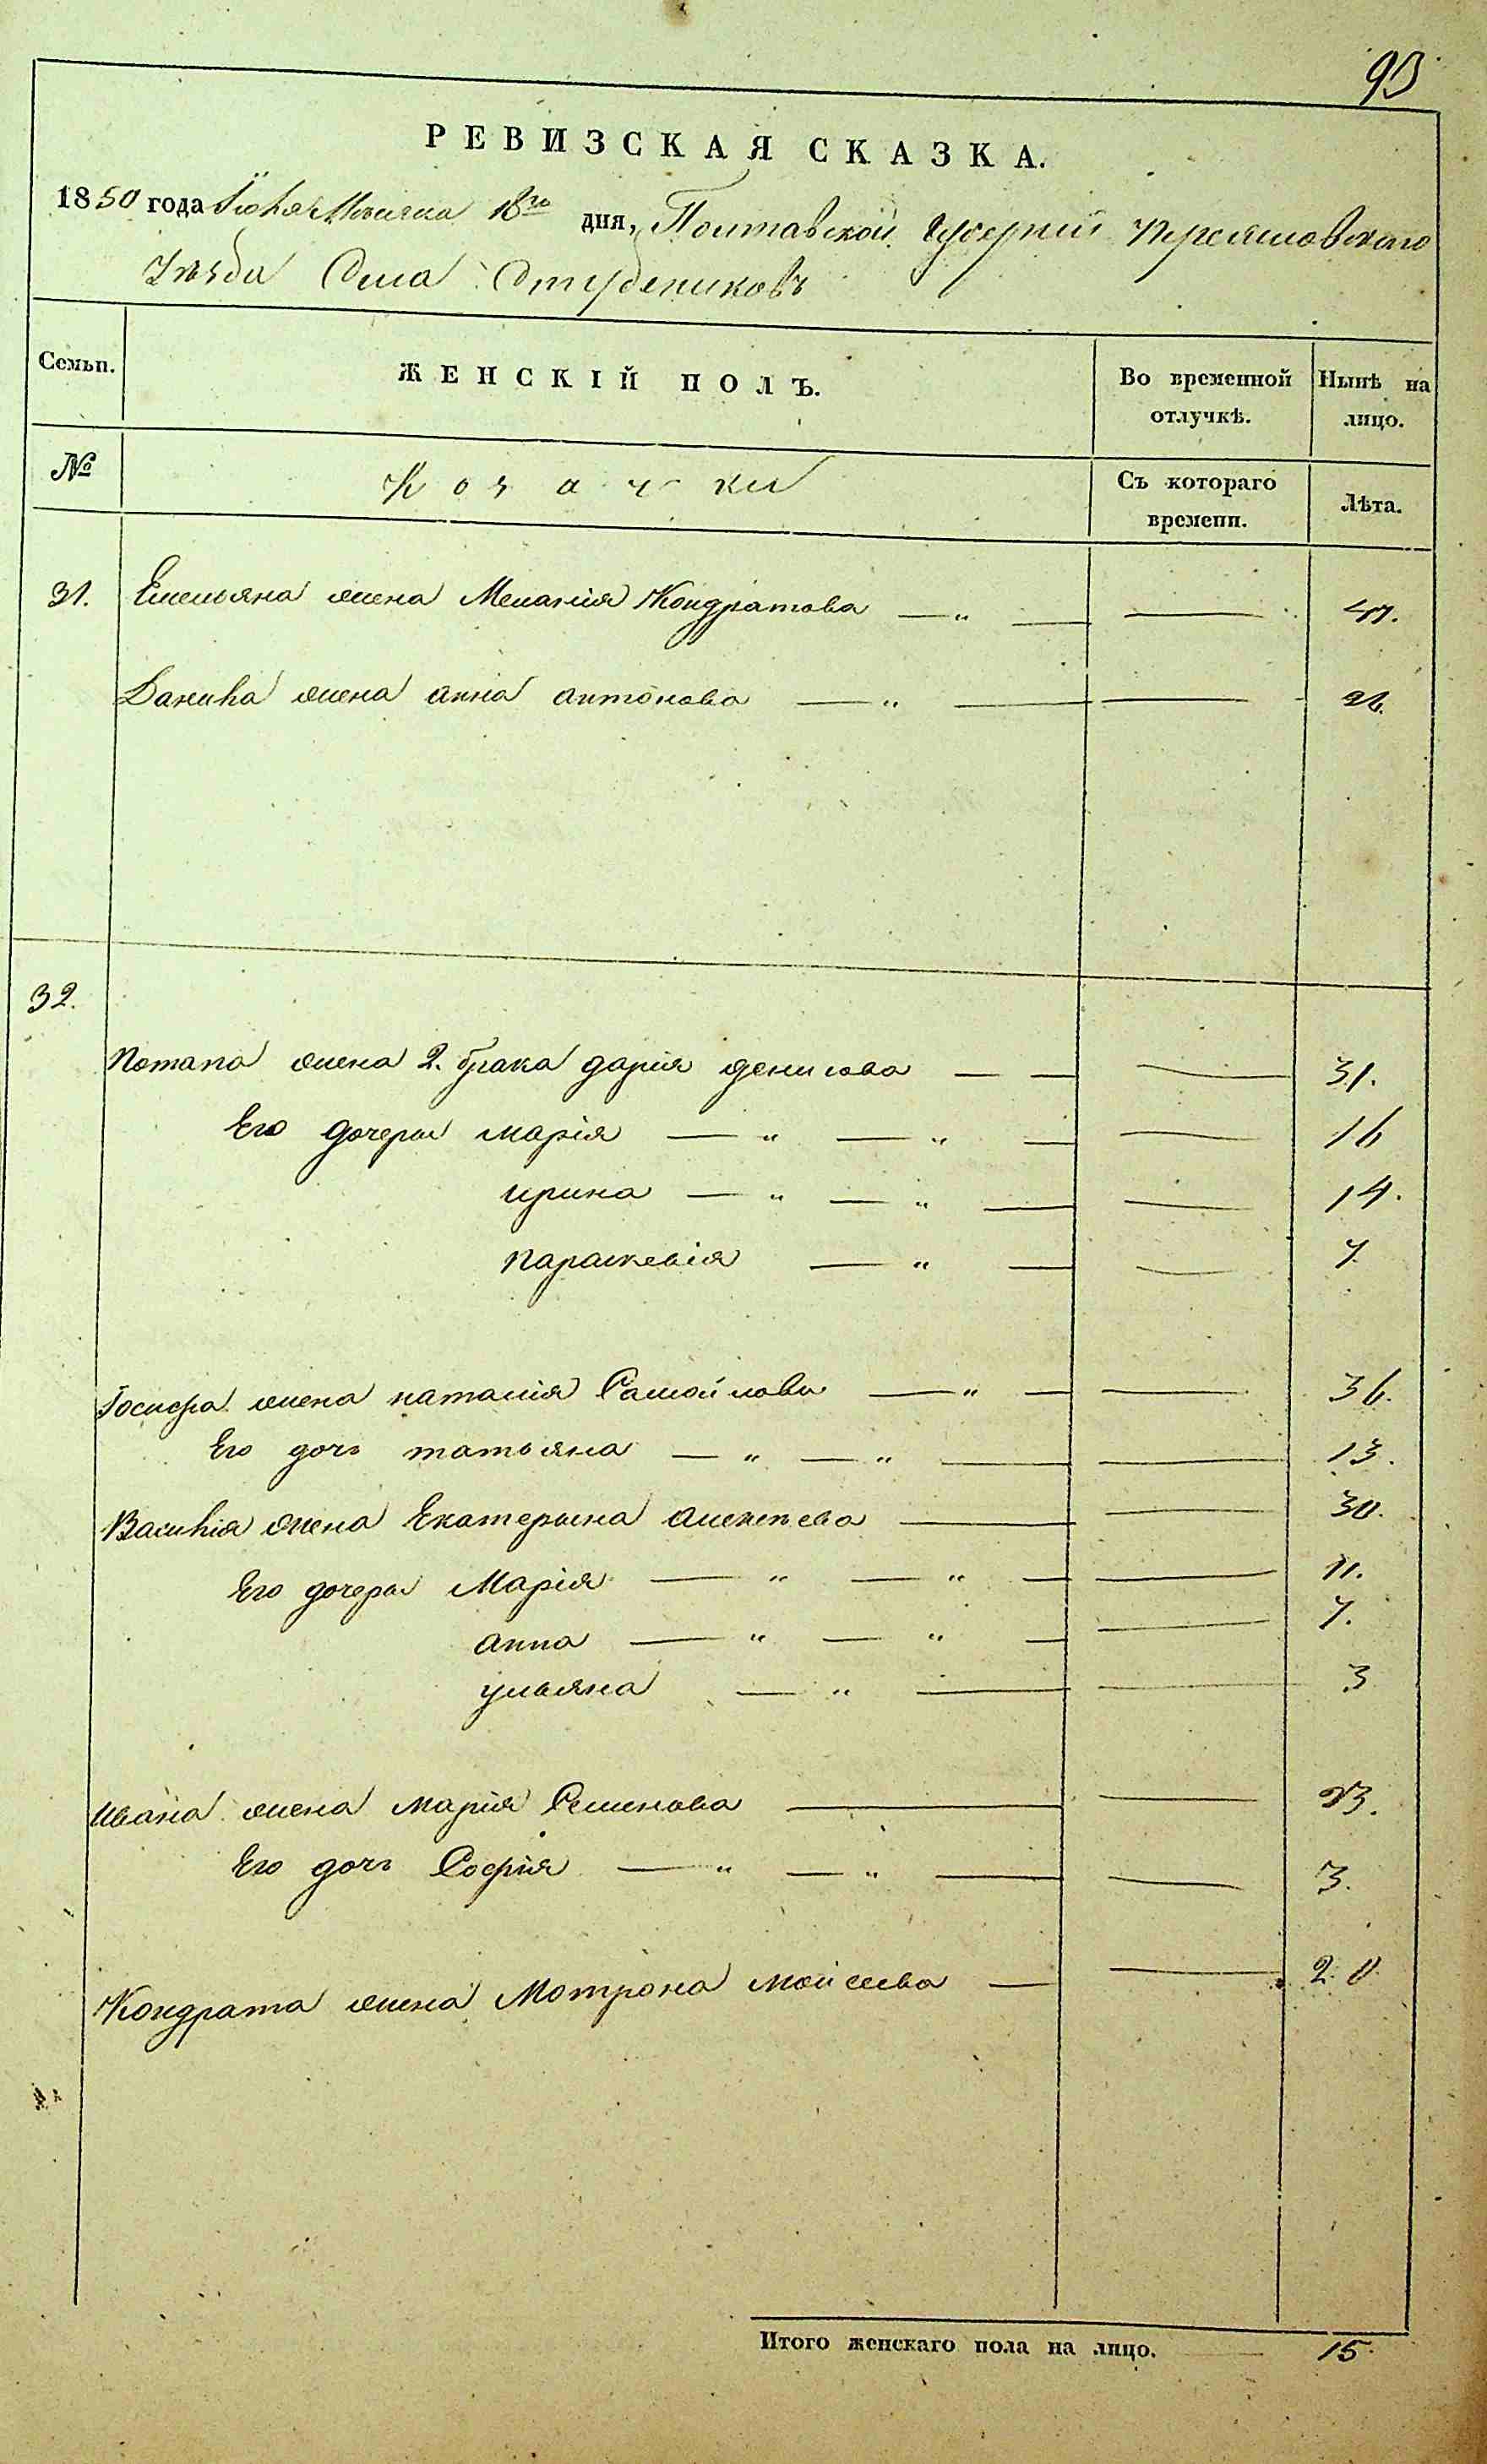 93
РЕВИЗСКАЯ СКАЗКА.
1850 года Іюля Месяца 18го дня, Полтавской Губерніи Переяславскаго
Уезда Села Студениковъ
Семьи. ЖЕНСКІЙ ПОЛЪ. Во временной отлучкѣ. Нынѣ на лицо.
№ Козачки Съ котораго времени. Лѣта.
31. Емельяна жена Меланія Кондратова — „ — — 47.
Данила жена анна антонова — „ — — 26.
32.
Потапа жена 2. брака дарія денисова — — — 31.
Его дочеры марія — „ — „ — — 16
ирина — „ — „ — — 14.
параскевія — „ — — 7.
Іосифа жена наталія Самойлова — „ — — 36.
Его дочь татьяна — „ — „ — — 13.
Василія жена Екатерына алексеева — — 30.
Его дочеры Марія — „ — „ — — 11.
анна — „ — „ — — 7.
ульяна — „ — — 3
Ивана жена марія Семенова — — 23.
Его дочь Софія — „ — „ — — 3.
Кондрата жена Мотрона моисеева — — 20
Итого женскаго пола на лицо. — 15.